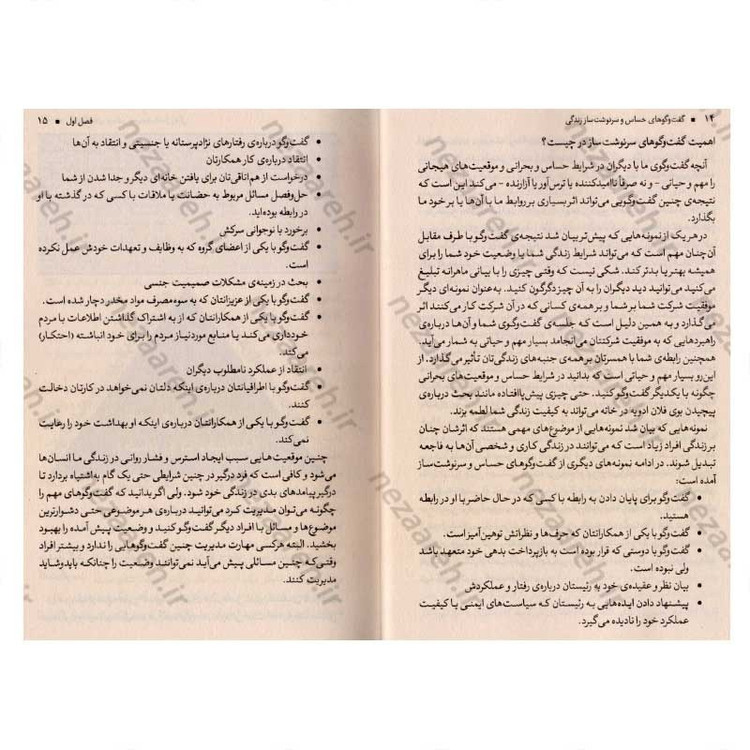 ۱۴ ■ گفت‌وگوهای حساس و سرنوشت‌ساز زندگی
اهمیت گفت‌وگوهای سرنوشت‌ساز در چیست؟
آنچه گفت‌وگوی ما با دیگران در شرایط حساس و بحرانی و موقعیت‌های هیجانی
را مهم و حیاتی - و نه صرفاً ناامیدکننده یا ترس‌آور یا آزارنده - می‌کند این است که
نتیجه‌ی چنین گفت‌وگویی می‌تواند اثر بسیاری بر روابط ما با آن‌ها یا بر خود ما
بگذارد.
در هریک از نمونه‌هایی که پیش‌تر بیان شد نتیجه‌ی گفت‌وگو با طرف مقابل
آن‌چنان مهم است که می‌تواند شرایط زندگی شما یا وضعیت خود شما را برای
همیشه بهتر یا بدتر کند. شکی نیست که وقتی چیزی را با بیانی ماهرانه تبلیغ
می‌کنید می‌توانید دید دیگران را به آن چیز دگرگون کنید. به‌عنوان نمونه‌ای دیگر
موفقیت شرکت شما بر شما و بر همه‌ی کسانی که در آن شرکت کار می‌کنند اثر
می‌گذارد و به همین دلیل است که جلسه‌ی گفت‌وگوی شما و آن‌ها درباره‌ی
راهبردهایی که به موفقیت شرکتتان می‌انجامد بسیار مهم و حیاتی به شمار می‌آید.
همچنین رابطه‌ی شما با همسرتان بر همه‌ی جنبه‌های زندگی‌تان تأثیر می‌گذارد. از
این‌رو بسیار مهم و حیاتی است که بدانید در شرایط حساس و موقعیت‌های بحرانی
چگونه با یکدیگر گفت‌وگو کنید. حتی چیزی پیش‌پاافتاده مانند بحث درباره‌ی
پیچیدن بوی فلان ادویه در خانه می‌تواند به کیفیت زندگی شما لطمه بزند.
نمونه‌هایی که بیان شد نمونه‌هایی از موضوع‌های مهمی هستند که اثرشان چنان
بر زندگی افراد زیاد است که می‌توانند در زندگی کاری و شخصی آن‌ها به فاجعه
تبدیل شوند. در ادامه نمونه‌های دیگری از گفت‌وگوهای حساس و سرنوشت‌ساز
آمده است:
• گفت‌وگو برای پایان دادن به رابطه با کسی که در حال حاضر با او در رابطه
هستید.
• گفت‌وگو با یکی از همکارانتان که حرف‌ها و نظراتش توهین‌آمیز است.
• گفت‌وگو با دوستی که قرار بوده است به بازپرداخت بدهی خود متعهد باشد
ولی نبوده است.
• بیان نظر و عقیده‌ی خود به رئیستان درباره‌ی رفتار و عملکردش
• پیشنهاد دادن ایده‌هایی به رئیستان که سیاست‌های ایمنی یا کیفیت
عملکرد خود را نادیده می‌گیرد.
فصل اول ■ ۱۵
• گفت‌وگو درباره‌ی رفتارهای نژادپرستانه یا جنسیتی و انتقاد به آن‌ها
• انتقاد درباره‌ی کار همکارتان
• درخواست از هم‌اتاقی‌تان برای یافتن خانه‌ای دیگر و جدا شدن از شما
• حل‌وفصل مسائل مربوط به حضانت یا ملاقات با کسی که در گذشته با او
در رابطه بوده‌اید.
• برخورد با نوجوانی سرکش
• گفت‌وگو با یکی از اعضای گروه که به وظایف و تعهدات خودش عمل نکرده
است.
• بحث در زمینه‌ی مشکلات صمیمیت جنسی
• گفت‌وگو با یکی از عزیزانتان که به سوءمصرف مواد مخدر دچار شده است.
• گفت‌وگو با یکی از همکارانتان که از به اشتراک گذاشتن اطلاعات با مردم
خودداری می‌کند یا منابع موردنیاز مردم را برای خود انباشته (احتکار)
می‌کند.
• انتقاد از عملکرد نامطلوب دیگران
• گفت‌وگو با اطرافیانتان درباره‌ی اینکه دلتان نمی‌خواهد در کارتان دخالت
کنند.
• گفت‌وگو با یکی از همکارانتان درباره‌ی اینکه او بهداشت خود را رعایت
نمی‌کند.
چنین موقعیت‌هایی سبب ایجاد استرس و فشار روانی در زندگی ما انسان‌ها
می‌شود و کافی است که فرد درگیر در چنین شرایطی حتی یک گام به‌اشتباه بردارد تا
درگیر پیامدهای بدی در زندگی خود شود. ولی اگر بدانید که گفت‌وگوهای مهم را
چگونه می‌توان مدیریت کرد می‌توانید درباره‌ی هر موضوعی حتی دشوارترین
موضوع‌ها و مسائل با افراد دیگر گفت‌وگو کنید و وضعیت پیش آمده را بهبود
بخشید. البته هرکسی مهارت مدیریت چنین گفت‌وگوهایی را ندارد و بیشتر افراد
وقتی‌که چنین مسائلی پیش می‌آید نمی‌توانند وضعیت را چنانکه باید‌وشاید
مدیریت کنند.
nezaareh.ir